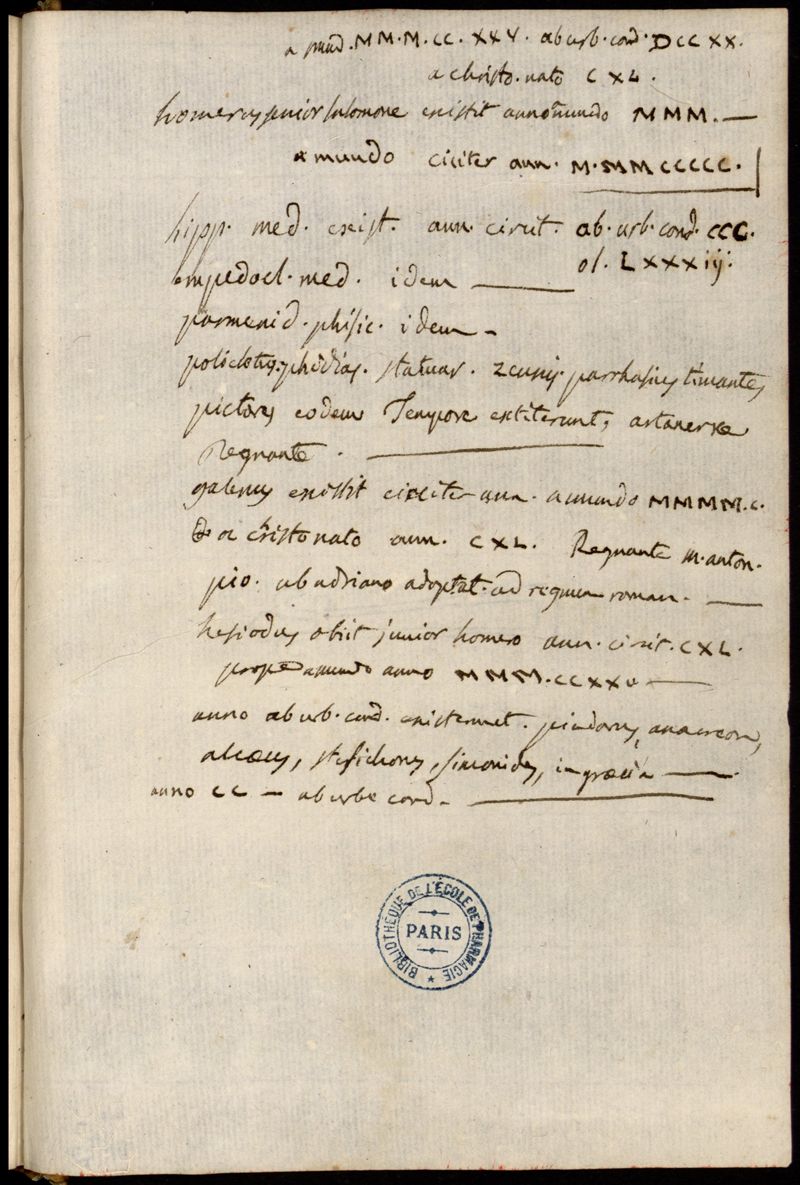 a mund. MM.M.CC.XXV. ab urb. cond. DCCXX.
a christo. nato CXL.
homerus junior salomone exstitit anno mundo MMM. —
a mundo circiter ann. M.MMCCCCC.
hipp. med. exist. ann. circit. ab. urb. cond. CCC.
ol. LXXXiij.
empedocl. med. idem —
parmenid. phisic. idem —
policletus. phidias. statuar. zeuxis. parrhasius timantes
pictores eodem Tempore extiterunt, artaxerxe
Regnante. —
galenus exstitit circiter ann. a mundo MMMM.C.
a christo nato ann. CXL. Regnante m. anton.
pio. ab adriano adoptat. ad regnum roman. —
hesiodus obiit junior homero ann. circit. CXL.
prope a mundo anno MMM.CCXXV —
anno ab urb. cond. existerunt. pindarus, anacreon,
alcæus, stesichorus, simonides, in græcia —
anno CC — ab urbe cond. —
BIBLIOTHÈQUE DE L'ÉCOLE DE PHARMACIE
PARIS